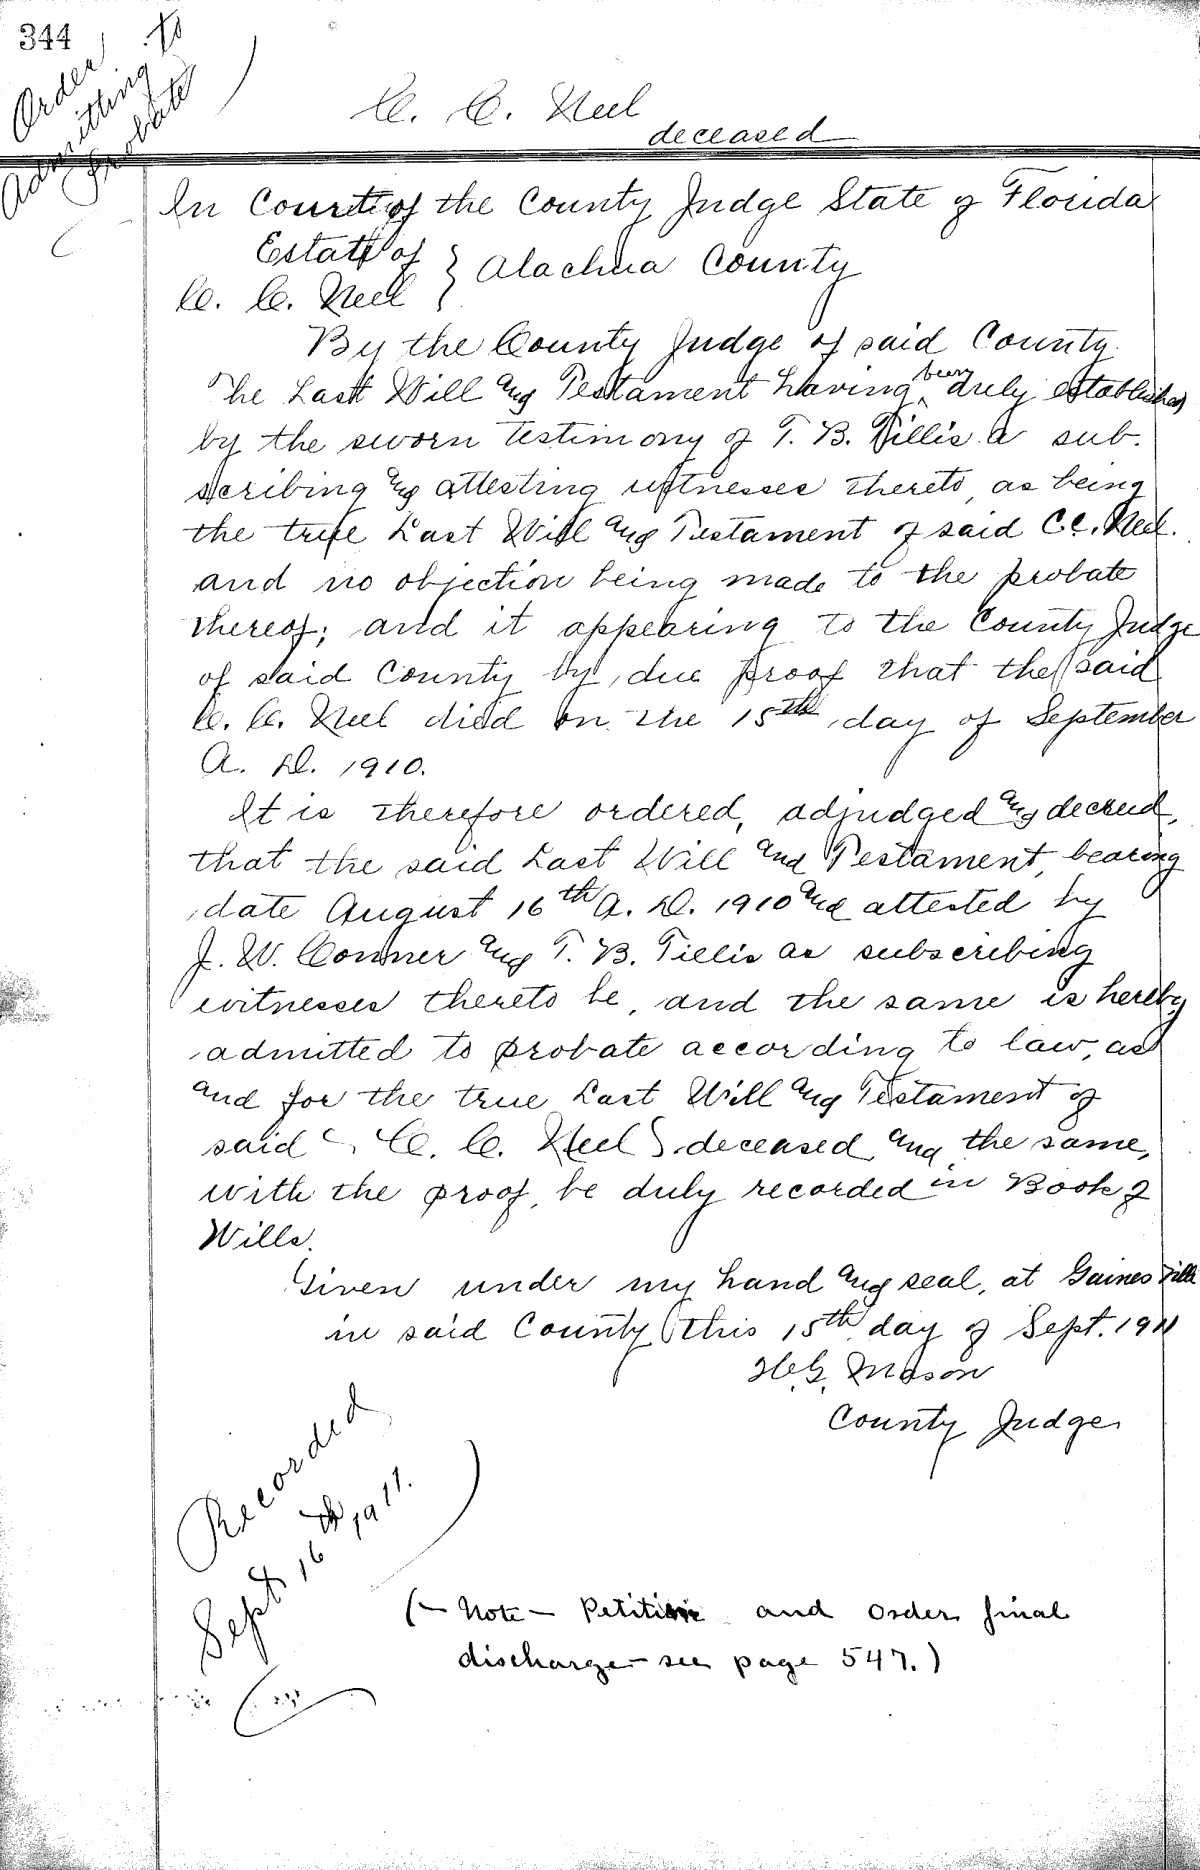 344
Order to
Admitting
Probate
C. C. Neel
deceased
In Court of the County Judge State of Florida
Estate of } Alachua County
C. C. Neel
By the County Judge of said County.
The Last Will and Testament having been duly established
by the sworn testimony of T. B. Tillis a sub-
scribing and attesting witnesses thereto, as being
the true Last Will and Testament of said C.C. Neel.
and no objection being made to the probate
thereof; and it appearing to the County Judge
of said County by due proof that the said
C. C. Neel died on the 15th day of September
A. D. 1910.
It is therefore ordered, adjudged and decreed,
that the said Last Will and Testament, bearing
date August 16th A. D. 1910 and attested by
J. W. Conner and T. B. Tillis as subscribing
witnesses thereto be, and the same is hereby
admitted to probate according to law, as
and for the true Last Will and Testament of
said C. C. Neel deceased and the same,
with the proof, be duly recorded in Book of
Wills.
Given under my hand and seal, at Gainesville
in said County this 15th day of Sept. 1911
H.G. Mason
County Judge.
Recorded
Sept 16th 1911.
(- Note - Petition and order final
discharge - see page 547.)